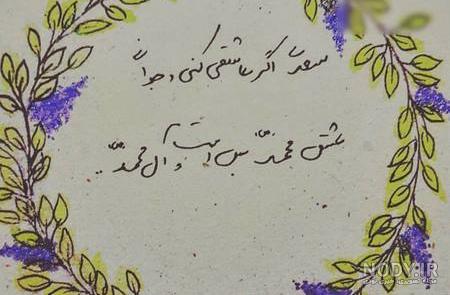 سعدی اگر عاشقی کنی و جوانی
عشق محمد بس است و آل محمد
NODY.IR